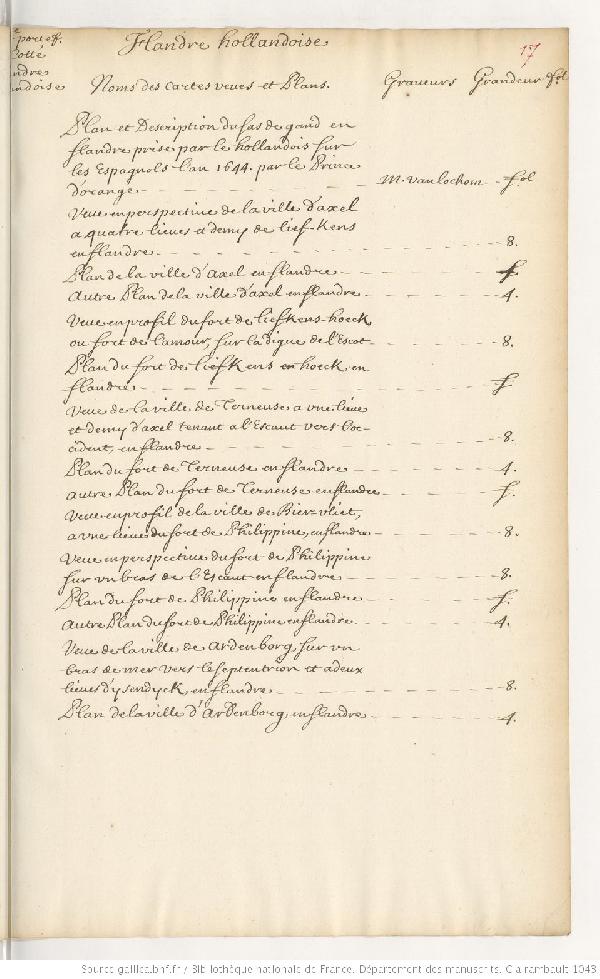 Flandre hollandoise
17
Noms des cartes veues et Plans. Graveurs Grandeur
Plan et Description du sas de gand en
flandre prise par le hollandois sur
les Espagnols l'an 1644. par le Prince
d'orange - M. van lochom - fol
Veue en perspective de la ville d'axel
a quatre lieues et demy de lief-kens
en flandre - 8.
Plan de la ville d'axel en flandre - f.
autre Plan de la ville d'axel en flandre - 4.
Veue en profil du fort de liefkens-hoeck
ou fort de l'amour, sur la digue de l'Escot - 8.
Plan du fort de liefkens en hoeck en
flandre - f.
Veue de la ville de Terneuse a vne lieue
et demy d'axel tenant a l'Escaut vers l'oc-
cident, en flandre - 8.
Plan du fort de Terneuse en flandre - 4.
autre Plan du fort de Terneuse en flandre - f.
Veue en profil de la ville de Bier-vliet,
a vne lieue du fort de Philippine, en flandre - 8.
Veue en perspective du fort de Philippine
sur vn bras de l'Escaut en flandre - 8.
Plan du fort de Philippine en flandre - f.
autre Plan du fort de Philippine en flandre - 4.
Veue de la ville de Ardenborg sur vn
bras de mer vers le septentrion et a deux
lieues d'ysendyck, en flandre - 8.
Plan de la ville d'Ardenborg, en flandre - 4.
Source gallica.bnf.fr / Bibliothèque nationale de France. Département des manuscrits. Clairambault 1043